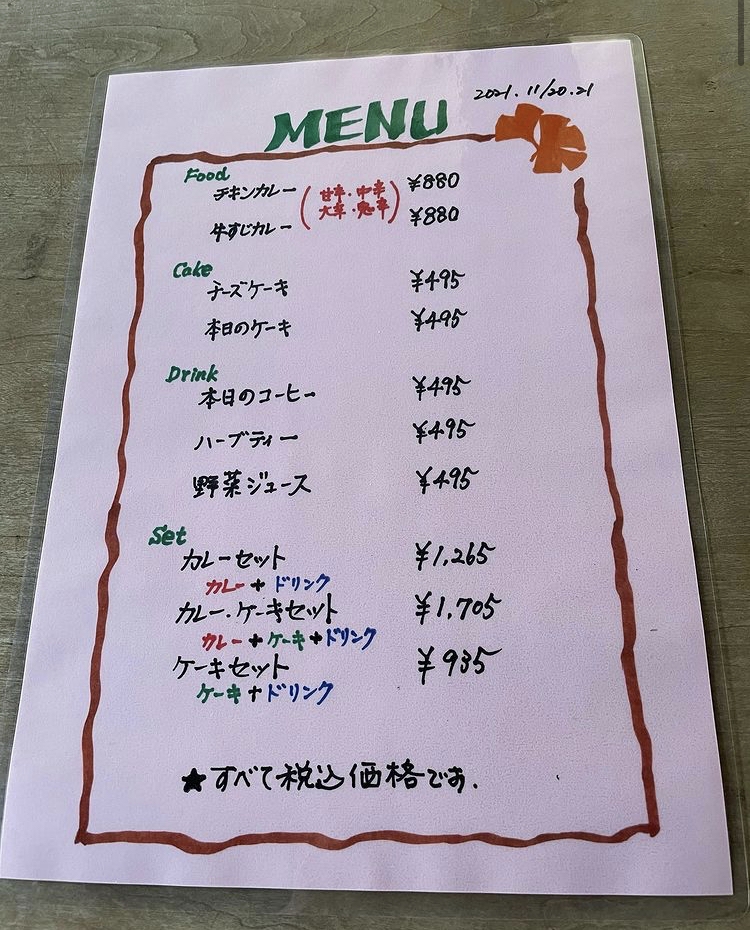 2021.11/20.21
MENU
Food
チキンカレー ¥880
(甘辛・中辛
大辛・鬼辛)
牛すじカレー ¥880
Cake
チーズケーキ ¥495
本日のケーキ ¥495
Drink
本日のコーヒー ¥495
ハーブティー ¥495
野菜ジュース ¥495
Set
カレーセット ¥1,265
カレー+ドリンク
カレー・ケーキセット ¥1,705
カレー+ケーキ+ドリンク
ケーキセット ¥935
ケーキ+ドリンク
★すべて税込価格です.